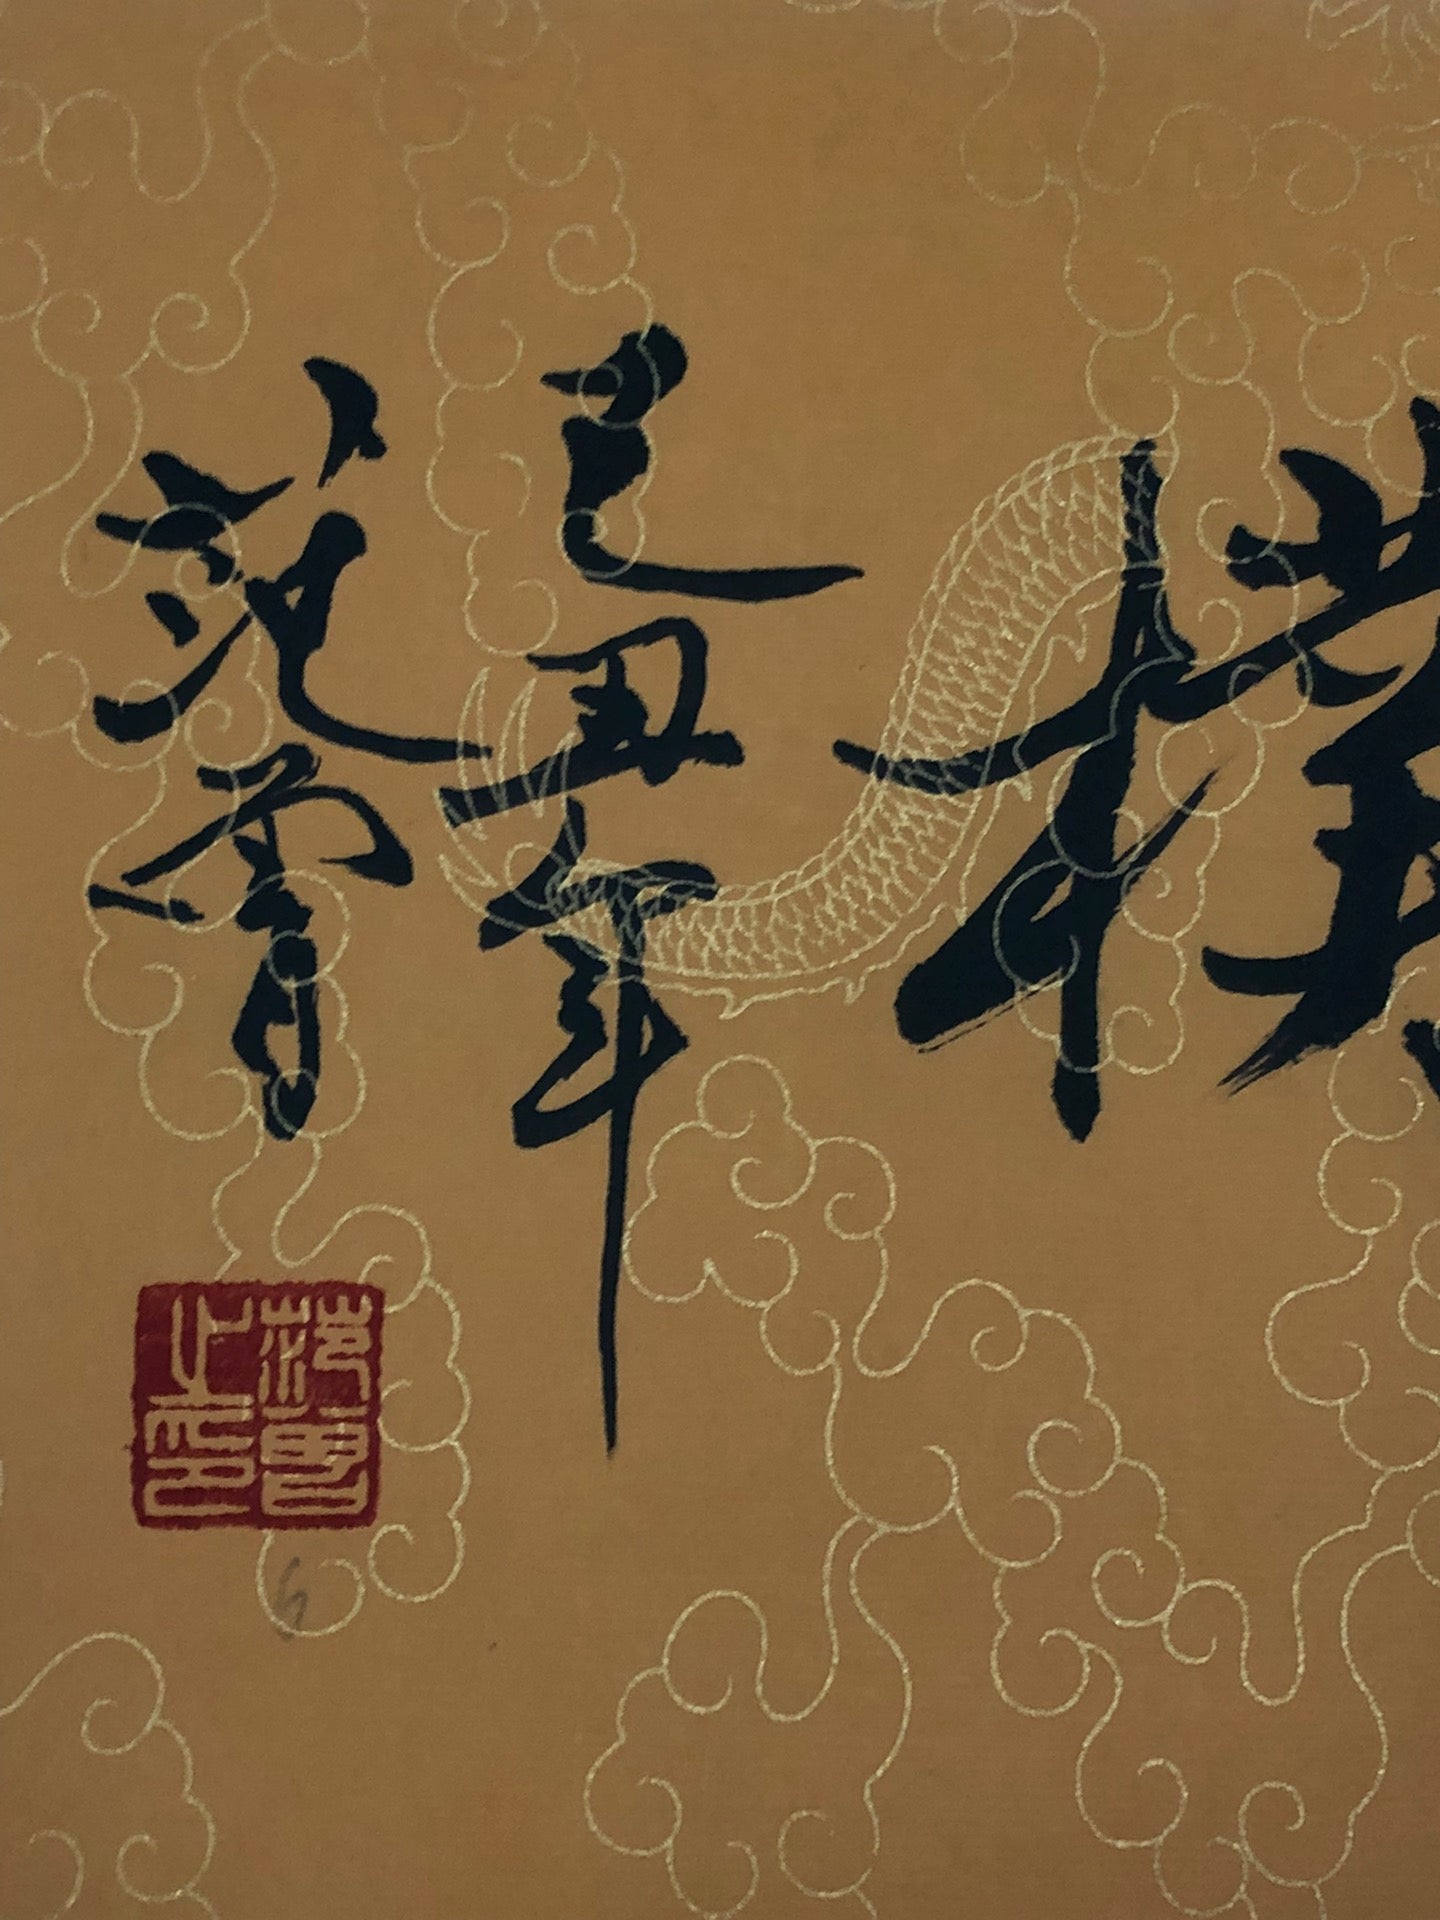 樸
己丑年
范曾
范曾之印